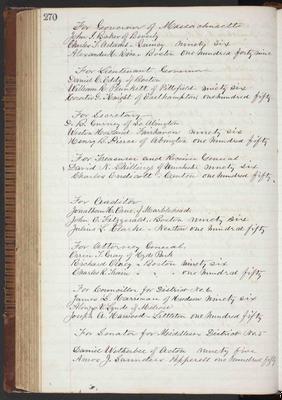 270
For Governor of Massachusetts
John I. Baker of Beverly
Charles F. Adams - Quincy ninety six
Alexander H. Rice - Boston one hundred forty nine
For Lieutenant Governor
Daniel C. Eddy of Boston
William R. Plunkett of Pittsfield ninety six
Horatio G. Knight of Easthampton one hundred fifty
For Secretary
D. B. Gurney of So Abington
Weston Howland Fairhaven ninety six
Henry B. Peirce of Abington one hundred fifty
For Treasurer and Receiver General
David N. Skillings of Winchester ninety six
Charles Endicott - Canton one hundred fifty
For Auditor
Jonathan H. Orne, of Marblehead
John E. Fitzgerald, Boston ninety six
Julius L. Clarke - Newton one hundred fifty
For Attorney General,
Orren T. Gray of Hyde Park
Richard Olney - Boston ninety six
Charles R. Train - one hundred fifty
For Councillor for District No. 6
James L. Harriman of Hudson ninety six
Alonzo V. Lynde of Melrose
Joseph A. Harwood - Littleton one hundred fifty
For Senator for Middlesex District No. 5
Daniel Wetherbee of Acton ninety five
Amos J. Saunders Pepperell one hundred fifty